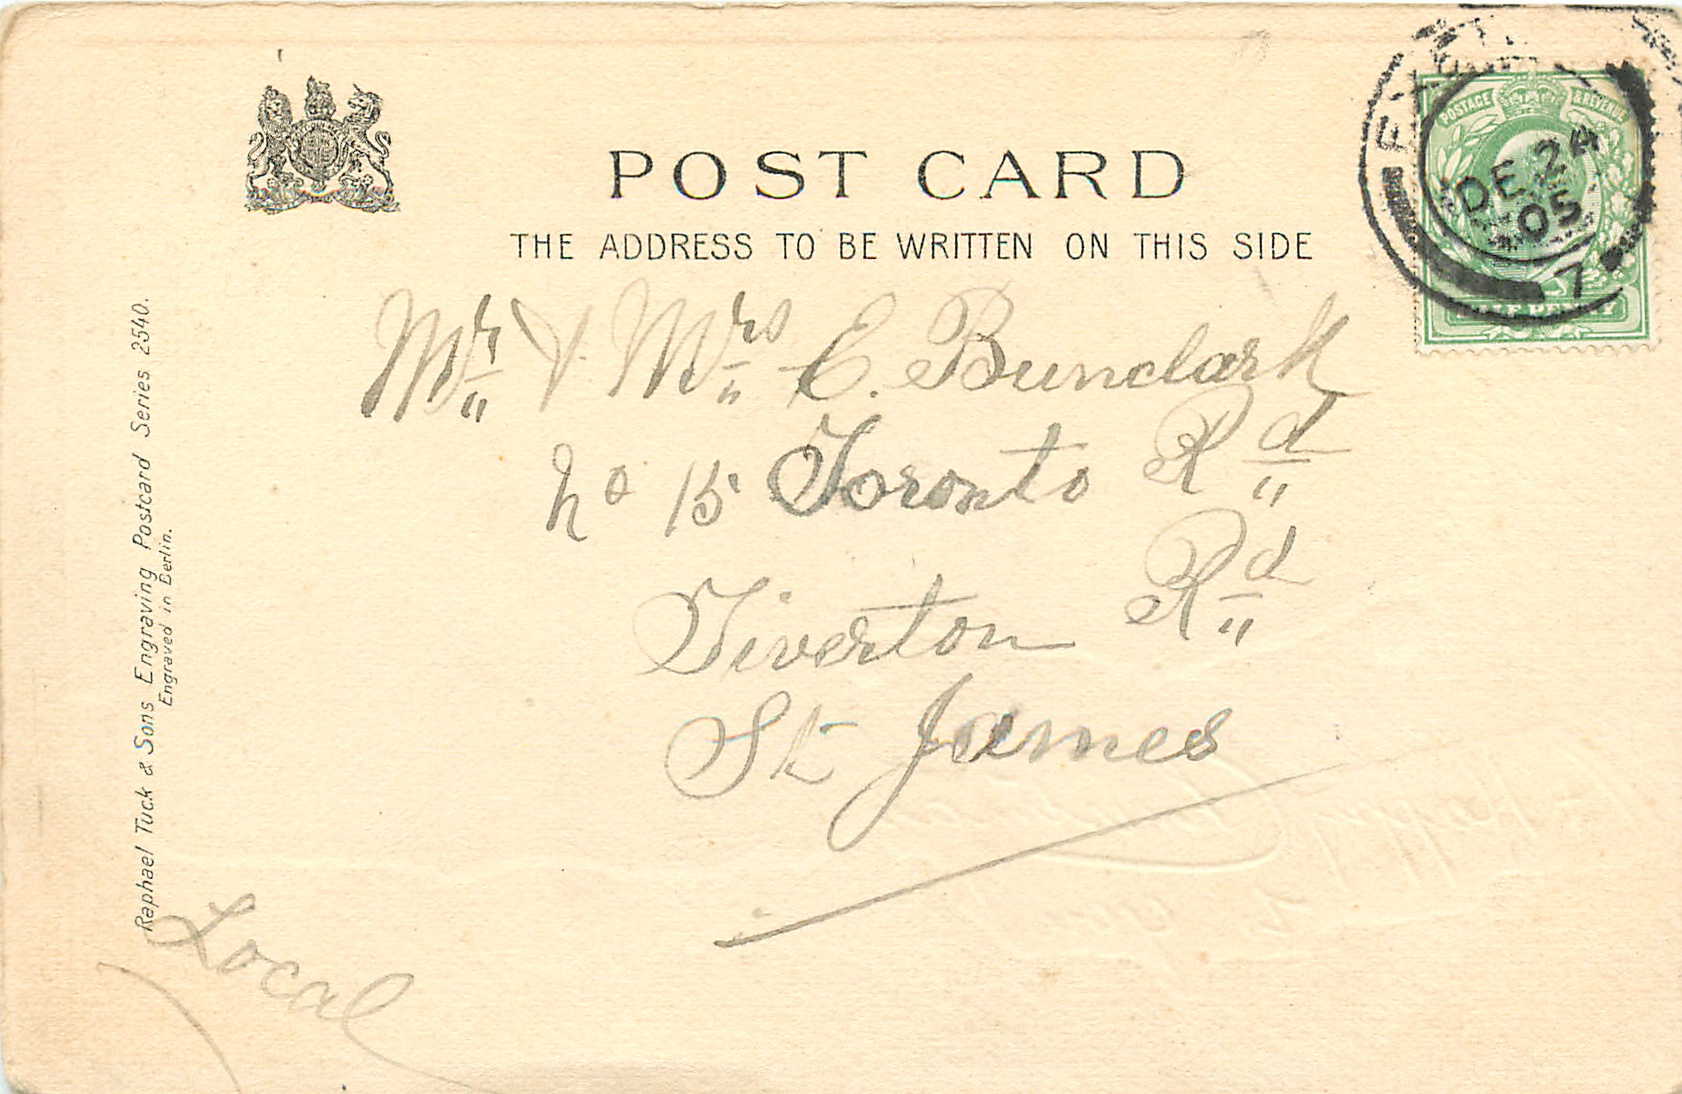 POST CARD
THE ADDRESS TO BE WRITTEN ON THIS SIDE
POSTAGE & REVENUE
DE 24
05
7
HALF PENNY
Mr & Mrs E. Bunclark
No 15 Toronto Rd
Tiverton Rd
St James
Local
Raphael Tuck & Sons Engraving Postcard Series 2540.
Engraved in Berlin.
A Happy Christmas
to you